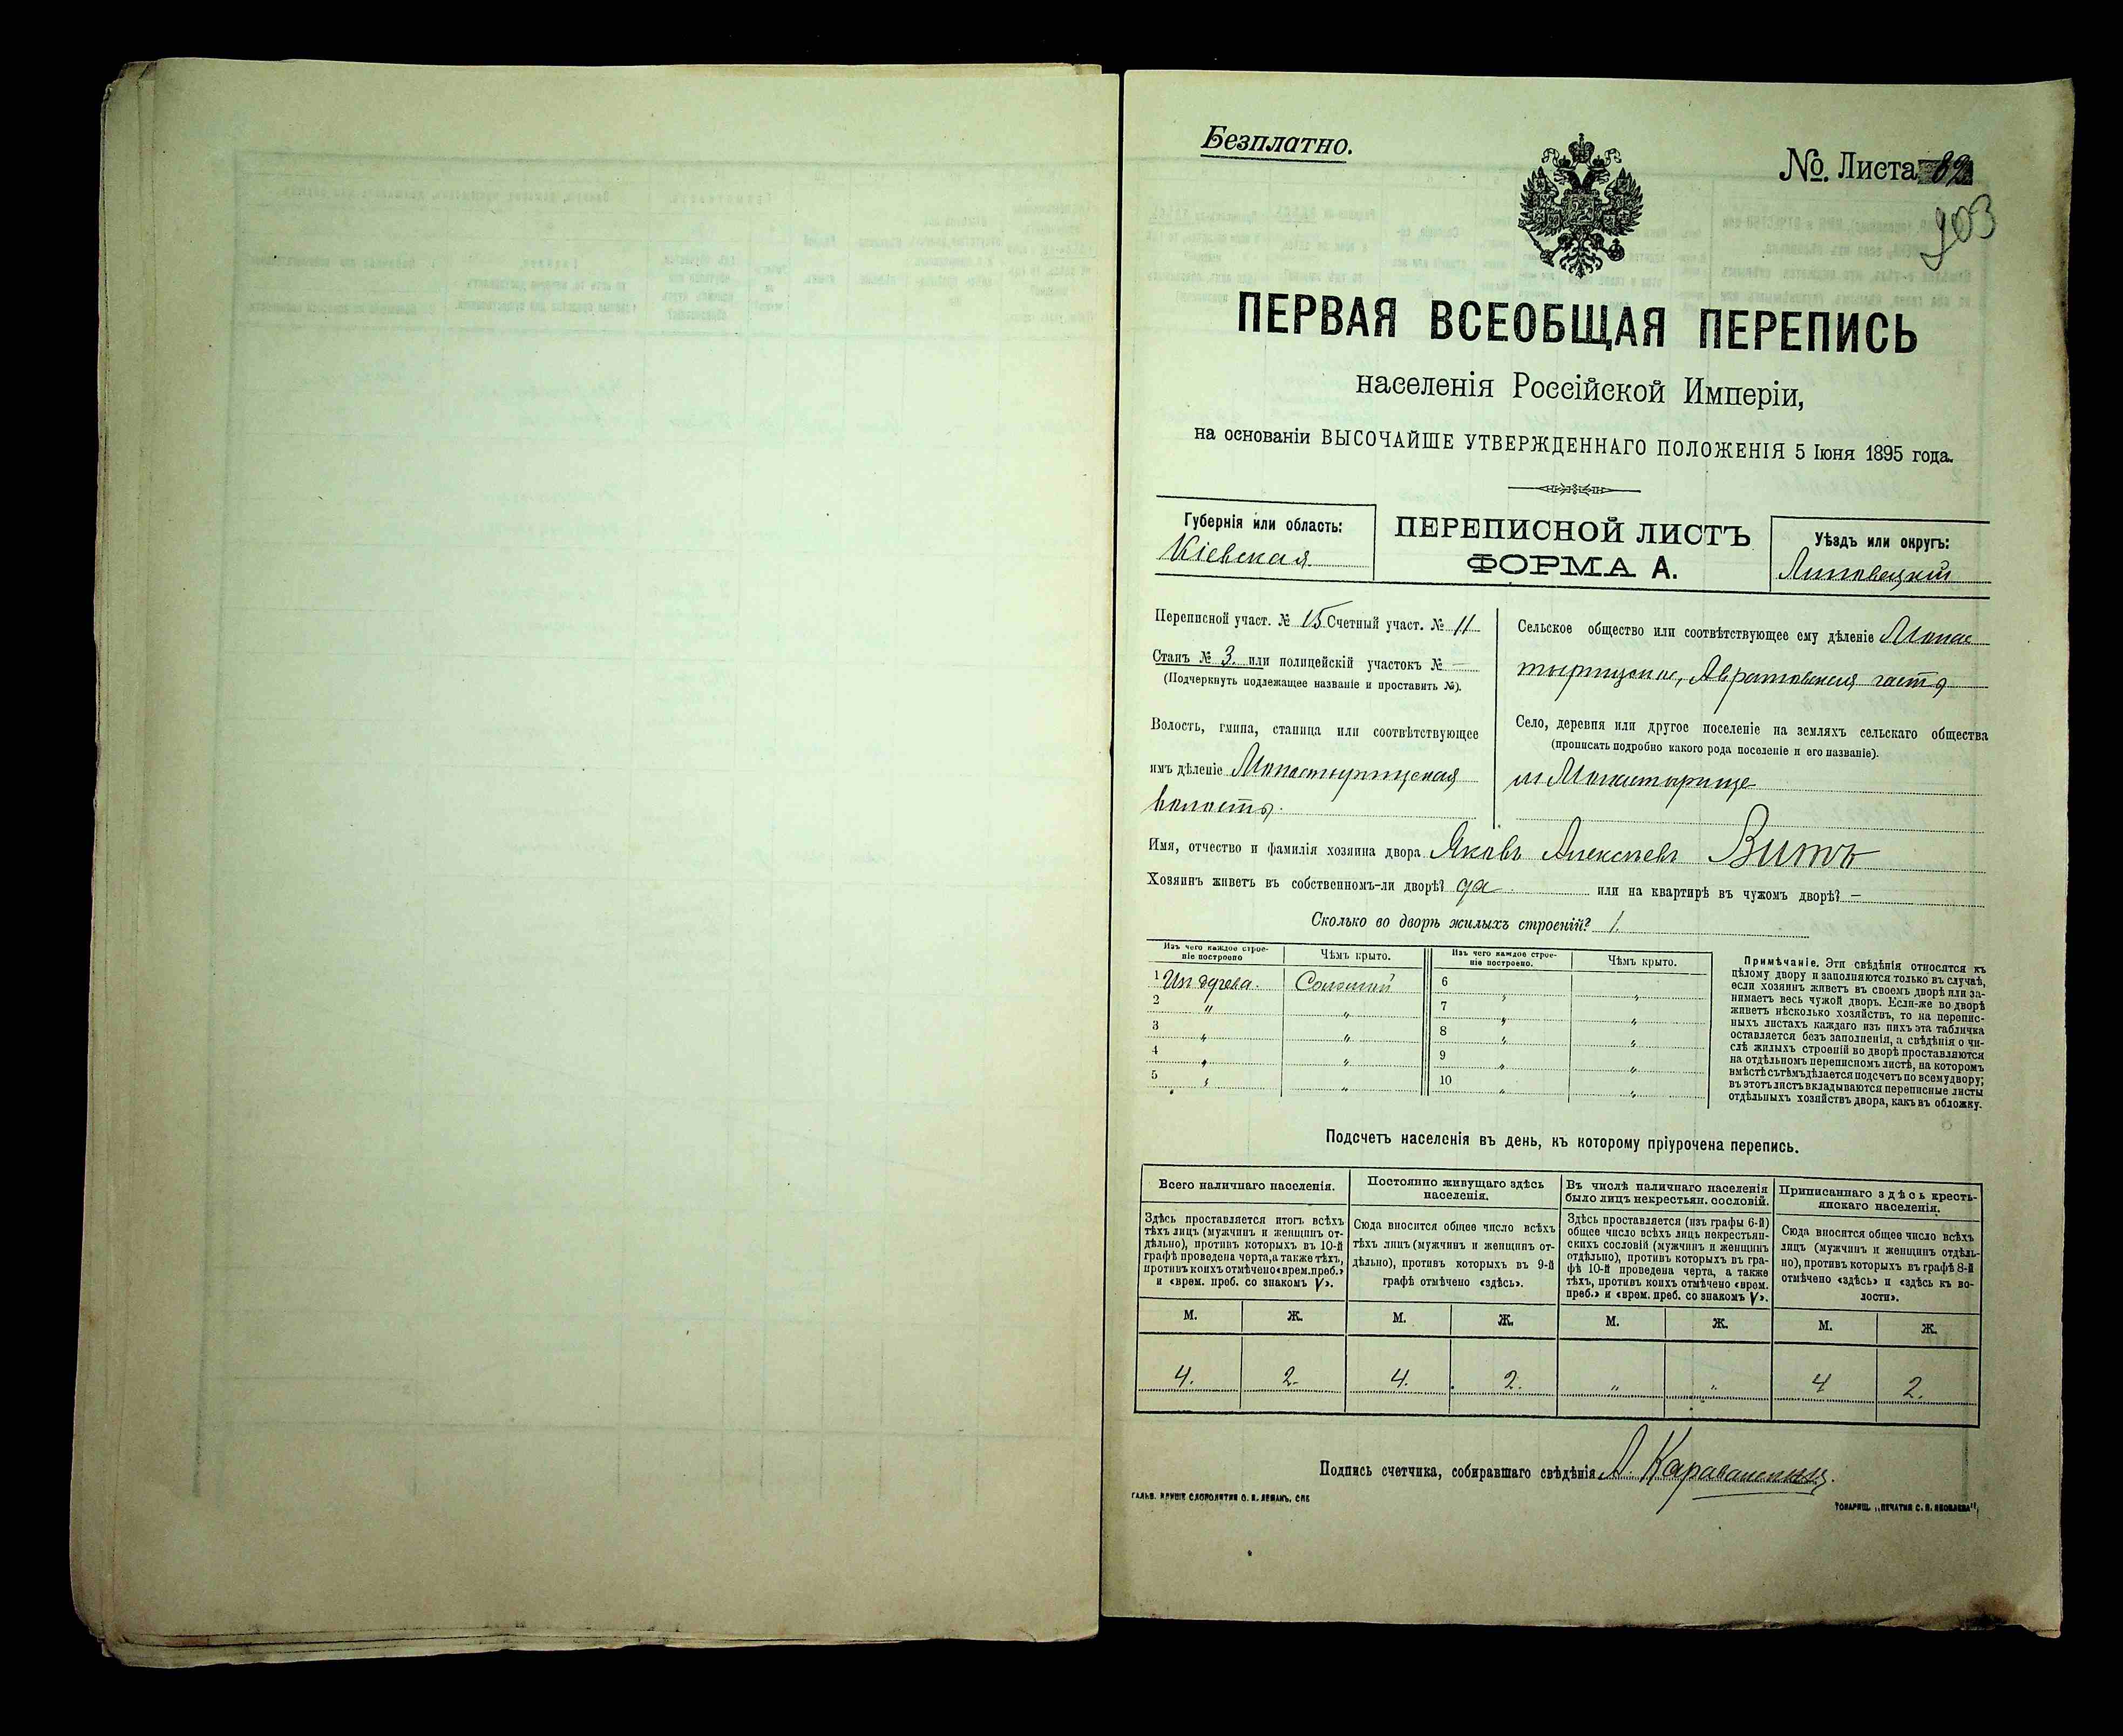 Безплатно.
№. Листа 82
203
ПЕРВАЯ ВСЕОБЩАЯ ПЕРЕПИСЬ
населенія Россійской Имперіи,
на основаніи ВЫСОЧАЙШЕ УТВЕРЖДЕННАГО ПОЛОЖЕНІЯ 5 Іюня 1895 года.
Губернія или область:
Кіевская
ПЕРЕПИСНОЙ ЛИСТЪ
ФОРМА А.
Уѣздъ или округъ:
Липовецкій
Переписной участ. № 15 Счетный участ. № 11
Станъ № 3. или полицейскій участокъ № —
(Подчеркнуть подлежащее названіе и проставить №).
Волость, гмина, станица или соотвѣтствующее
имъ дѣленіе Монастырищская
волость.
Сельское общество или соотвѣтствующее ему дѣленіе Монас
тырищское, Авратовская часть
Село, деревня или другое поселеніе на земляхъ сельскаго общества
(прописать подробно какого рода поселеніе и его названіе).
м Монастырище
Имя, отчество и фамилія хозяина двора Яковъ Алексѣевъ Витъ
Хозяинъ живетъ въ собственномъ-ли дворѣ? да или на квартирѣ въ чужомъ дворѣ? —
Сколько во дворѣ жилыхъ строеній? 1.
Изъ чего каждое строе-
ніе построено
Чѣмъ крыто.
Изъ чего каждое строе-
ніе построено.
Чѣмъ крыто.
1 Изъ дерева. Соломой 6 " "
2 " " 7 " "
3 " " 8 " "
4 " " 9 " "
5 " " 10 " "
Примѣчаніе. Эти свѣдѣнія относятся къ
цѣлому двору и заполняются только въ случаѣ,
если хозяинъ живетъ въ своемъ дворѣ или за-
нимаетъ весь чужой дворъ. Если-же во дворѣ
живетъ нѣсколько хозяйствъ, то на перепис-
ныхъ листахъ каждаго изъ нихъ эта табличка
оставляется безъ заполненія, а свѣдѣнія о чи-
слѣ жилыхъ строеній во дворѣ проставляются
на отдѣльномъ переписномъ листѣ, на которомъ
вмѣстѣ съ тѣмъ дѣлается подсчетъ по всему двору;
въ этотъ листъ вкладываются переписные листы
отдѣльныхъ хозяйствъ двора, какъ въ обложку.
Подсчетъ населенія въ день, къ которому пріурочена перепись.
Всего наличнаго населенія.
Здѣсь проставляется итогъ всѣхъ
тѣхъ лицъ (мужчинъ и женщинъ от-
дѣльно), противъ которыхъ въ 10-й
графѣ проведена черта, а также тѣхъ,
противъ коихъ отмѣчено «врем. преб.»
и «врем. преб. со знакомъ V».
Постоянно живущаго здѣсь
населенія.
Сюда вносится общее число всѣхъ
тѣхъ лицъ (мужчинъ и женщинъ от-
дѣльно), противъ которыхъ въ 9-й
графѣ отмѣчено «здѣсь».
Въ числѣ наличнаго населенія
было лицъ некрестьян. сословій.
Здѣсь проставляется (изъ графы 6-й)
общее число всѣхъ лицъ некрестьян-
скихъ сословій (мужчинъ и женщинъ
отдѣльно), противъ которыхъ въ гра-
фѣ 10-й проведена черта, а также
тѣхъ, противъ коихъ отмѣчено «врем.
преб.» и «врем. преб. со знакомъ V».
Приписаннаго здѣсь кресть-
янскаго населенія.
Сюда вносится общее число всѣхъ
лицъ (мужчинъ и женщинъ отдѣль-
но), противъ которыхъ въ графѣ 8-й
отмѣчено «здѣсь» и «здѣсь къ во-
лости».
М. Ж. М. Ж. М. Ж. М. Ж.
4. 2. 4. 2. " " 4 2.
Подпись счетчика, собиравшаго свѣдѣнія
ТОВАРИЩ. „ПЕЧАТНЯ С. П. ЯКОВЛЕВА"